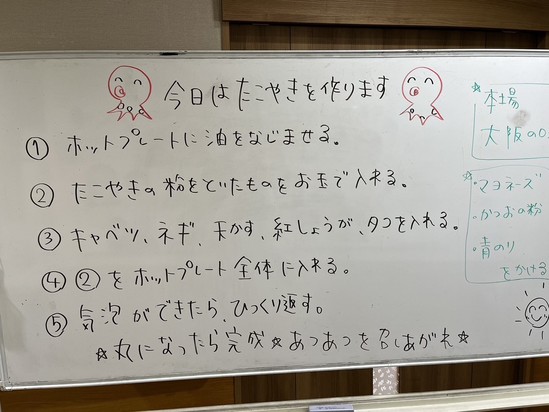 今日はたこやきを作ります
① ホットプレートに油をなじませる。
② たこやきの粉をといたものをお玉で入れる。
③ キャベツ、ネギ、天かす、紅しょうが、タコを入れる。
④ ②をホットプレート全体に入れる。
⑤ 気泡ができたら、ひっくり返す。
☆丸になったら完成☆あつあつを召しあがれ☆
☆本場
大阪の
☆
・マヨネーズ
・かつおの粉
・青のり
をかける